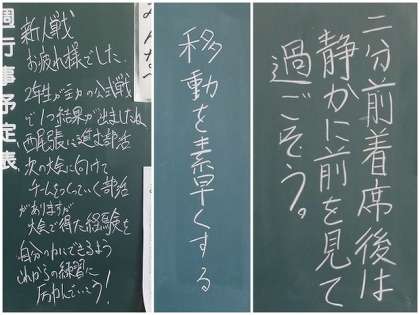 週行事予定表
新人戦
お疲れ様でした.
2年生が主力の公式戦
で1つ結果が出ましたね
西尾張に進む部活
次の大会に向けて
チームをつくっていく部活
がありますが
大会で得た経験を
自分の力にできるよう
これからの練習に
励んでいこう!
移動を素早くする
二分前着席後は
静かに前を見て
過ごそう。